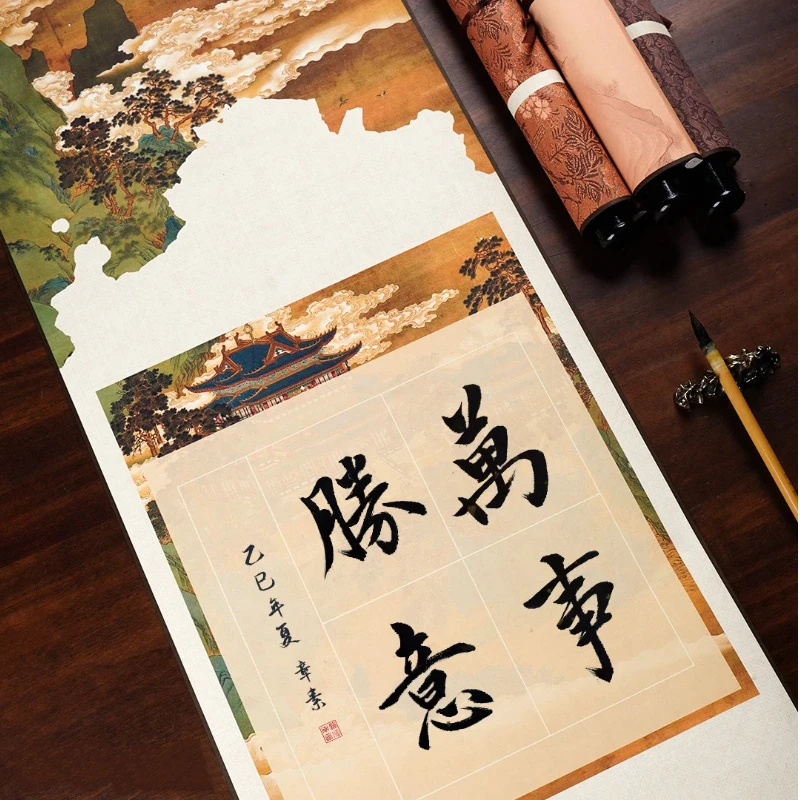 萬事
勝意
乙巳年夏 章素